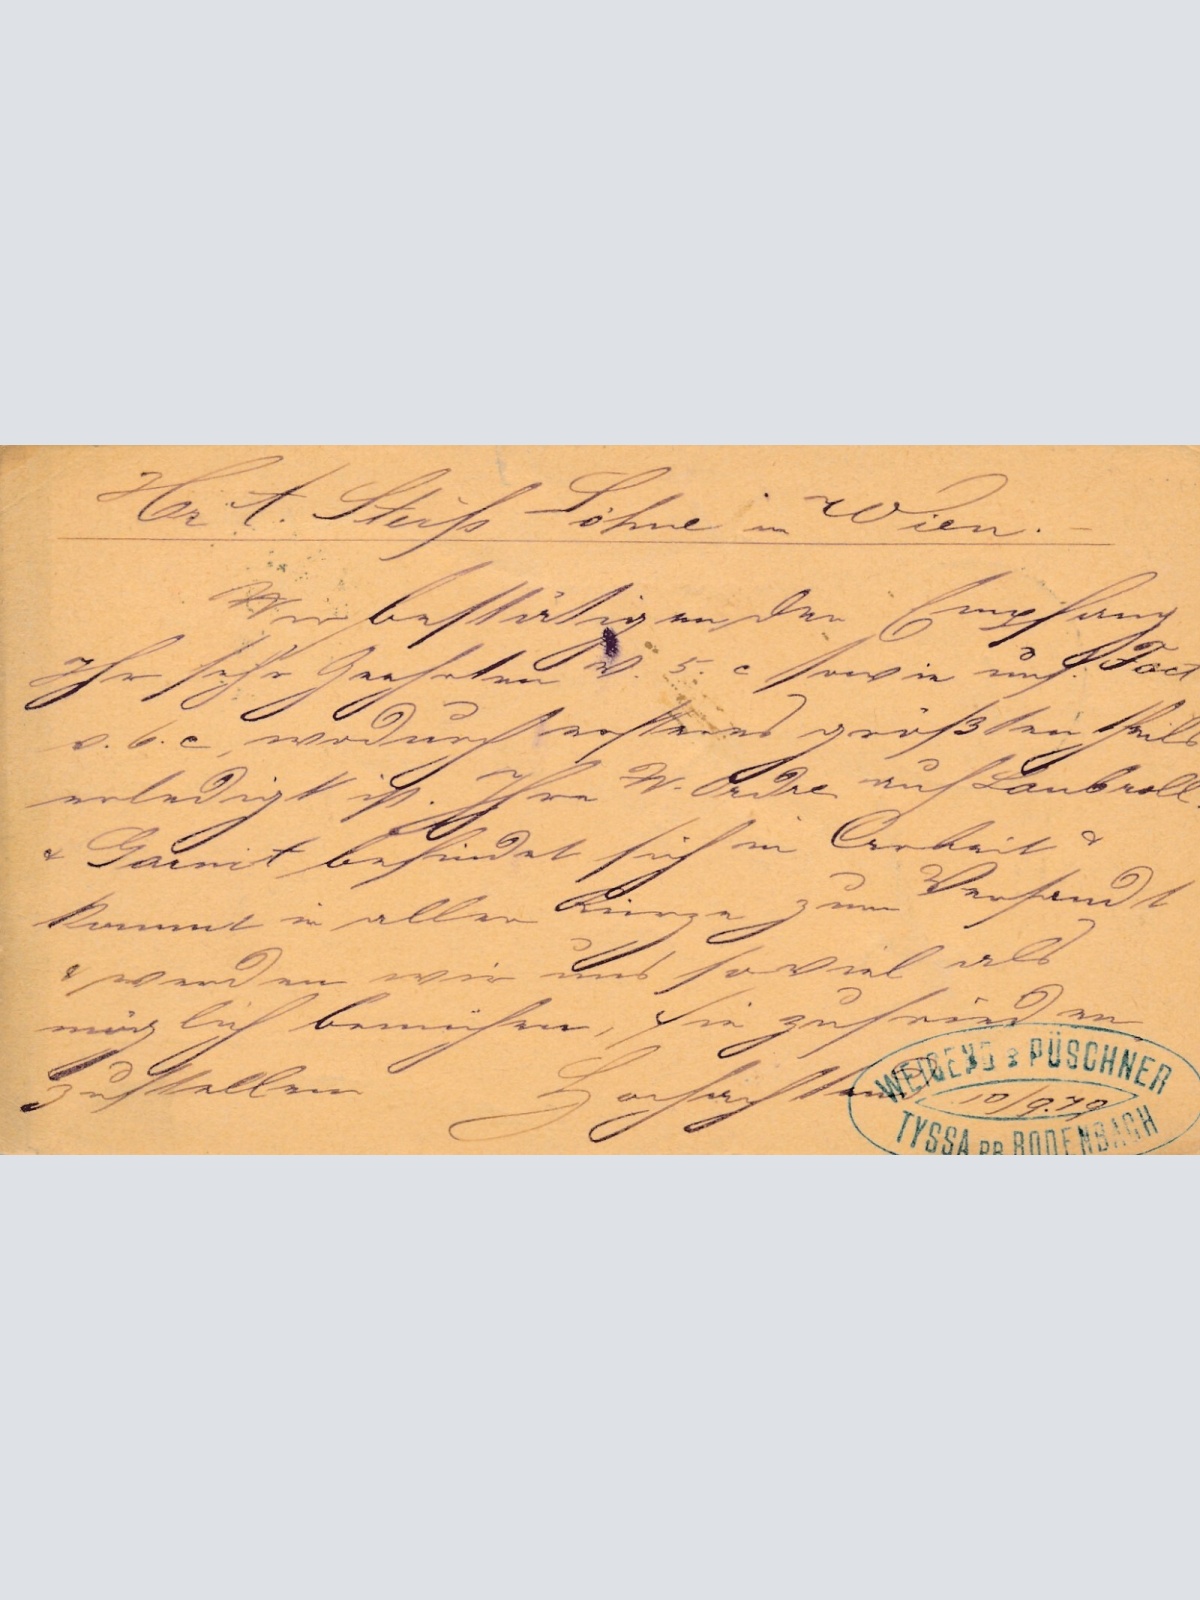 Hr A. Steiß Söhne in Wien. –
Wir bestätigen den Empfang
Ihr sehr Geehrten v. 5. c sowie uns. Fact
v. 6. c, wodurch ersteres größtentheils
erledigt ist. Ihre W. Ordre auf Laubroll.
& Garnit befindet sich in Arbeit &
kommt in aller Kürze zum Versandt
& werden wir uns soviel als
möglich bemühen, Sie zufrieden
zustellen Hochachtend
WEIGEND & PÜSCHNER
10/9.79
TYSSA PR BODENBACH